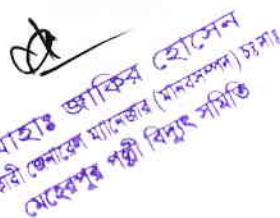 মোহাঃ জাকির হোসেন
কারী জেনারেল ম্যানেজার (মানবসম্পদ) চঃদাঃ
মেহেরপুর পল্লী বিদ্যুৎ সমিতি